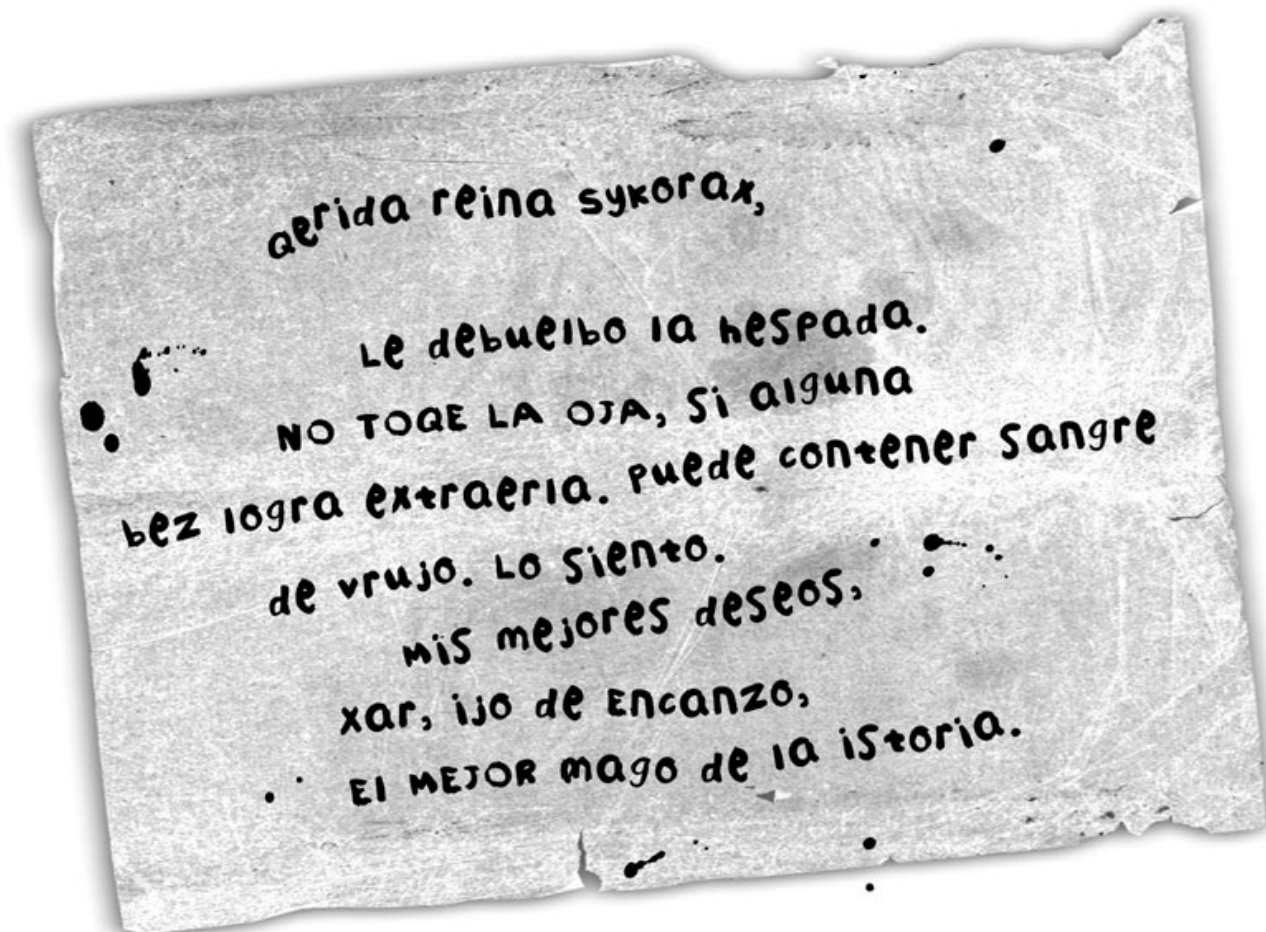 Qerida reina sykorax,
Le debuelbo la hespada.
NO TOQE LA OJA, Si alguna
bez logra extraerla. Puede contener Sangre
de vrujo. Lo Siento.
Mis mejores deseos,
xar, ijo de Encanzo,
El MEJOR mago de la iStoria.